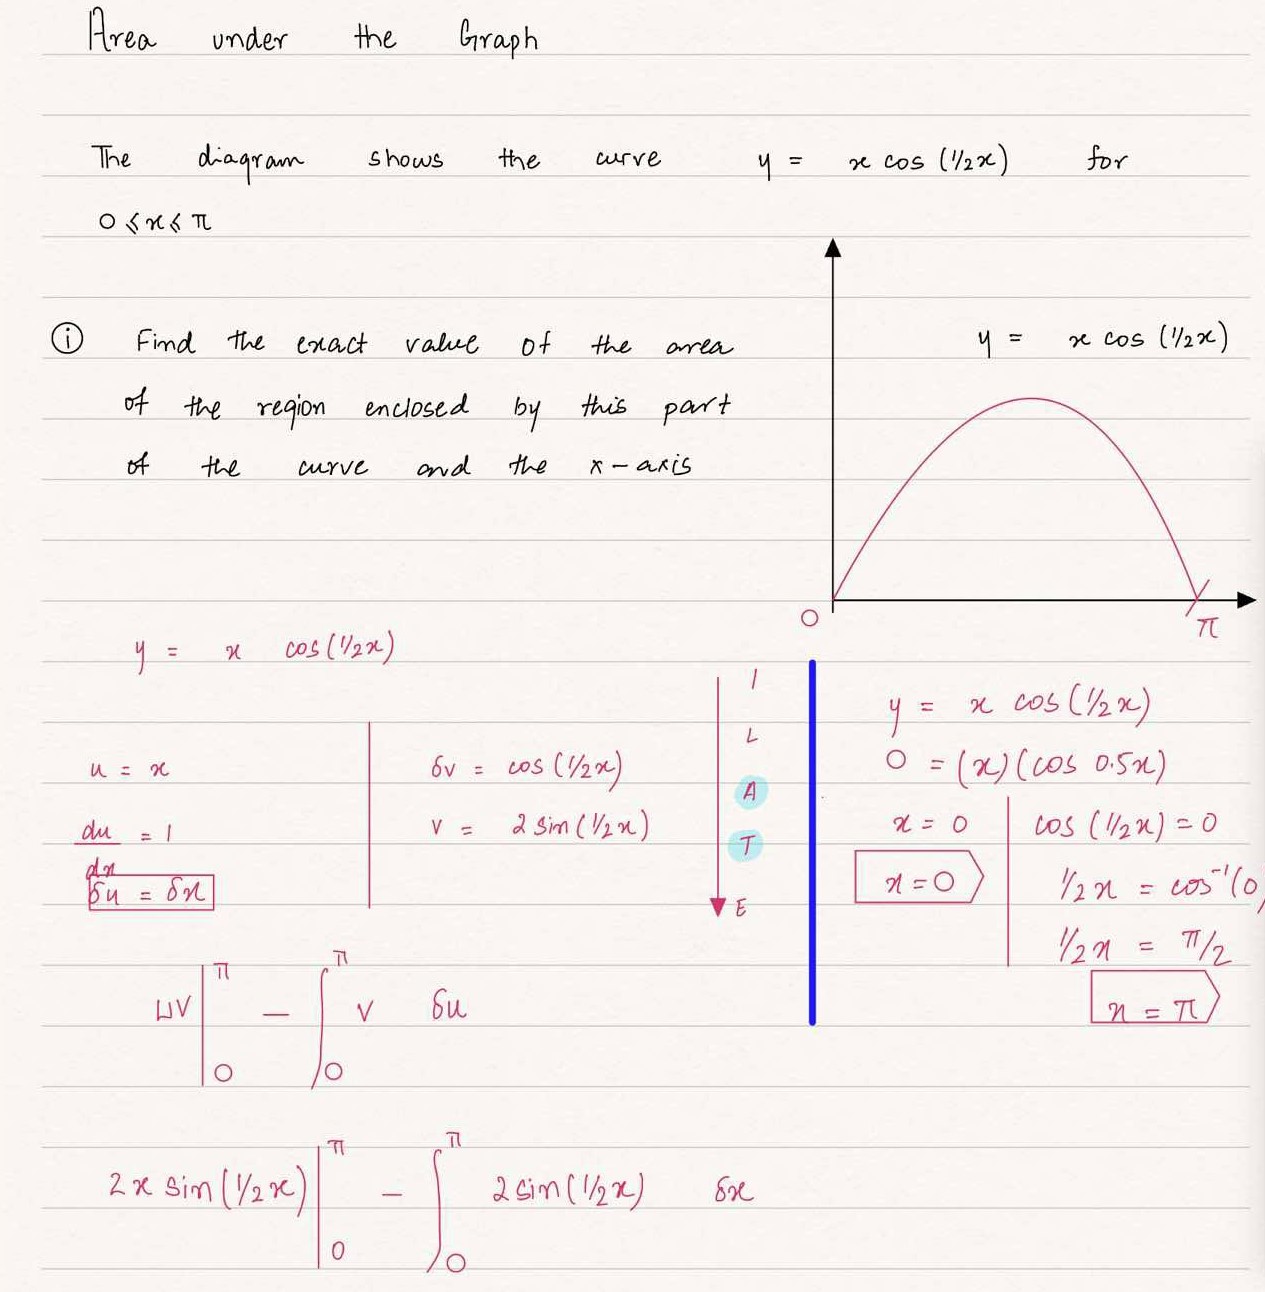 Area under the Graph
The diagram shows the curve y = x cos (1/2x) for
0 ⩽ x ⩽ π
(i) Find the exact value of the area
of the region enclosed by this part
of the curve and the x-axis
y = x cos (1/2x)
0
π
y = x cos(1/2x)
u = x
du/dx = 1
δu = δx
δv = cos(1/2x)
v = 2 sin(1/2x)
I
L
A
T
E
y = x cos(1/2x)
0 = (x)(cos 0.5x)
x = 0
x = 0
cos (1/2x) = 0
1/2x = cos⁻¹(0)
1/2x = π/2
x = π
uv |₀^π − ∫₀^π v δu
2x sin(1/2x) |₀^π − ∫₀^π 2sin(1/2x) δx